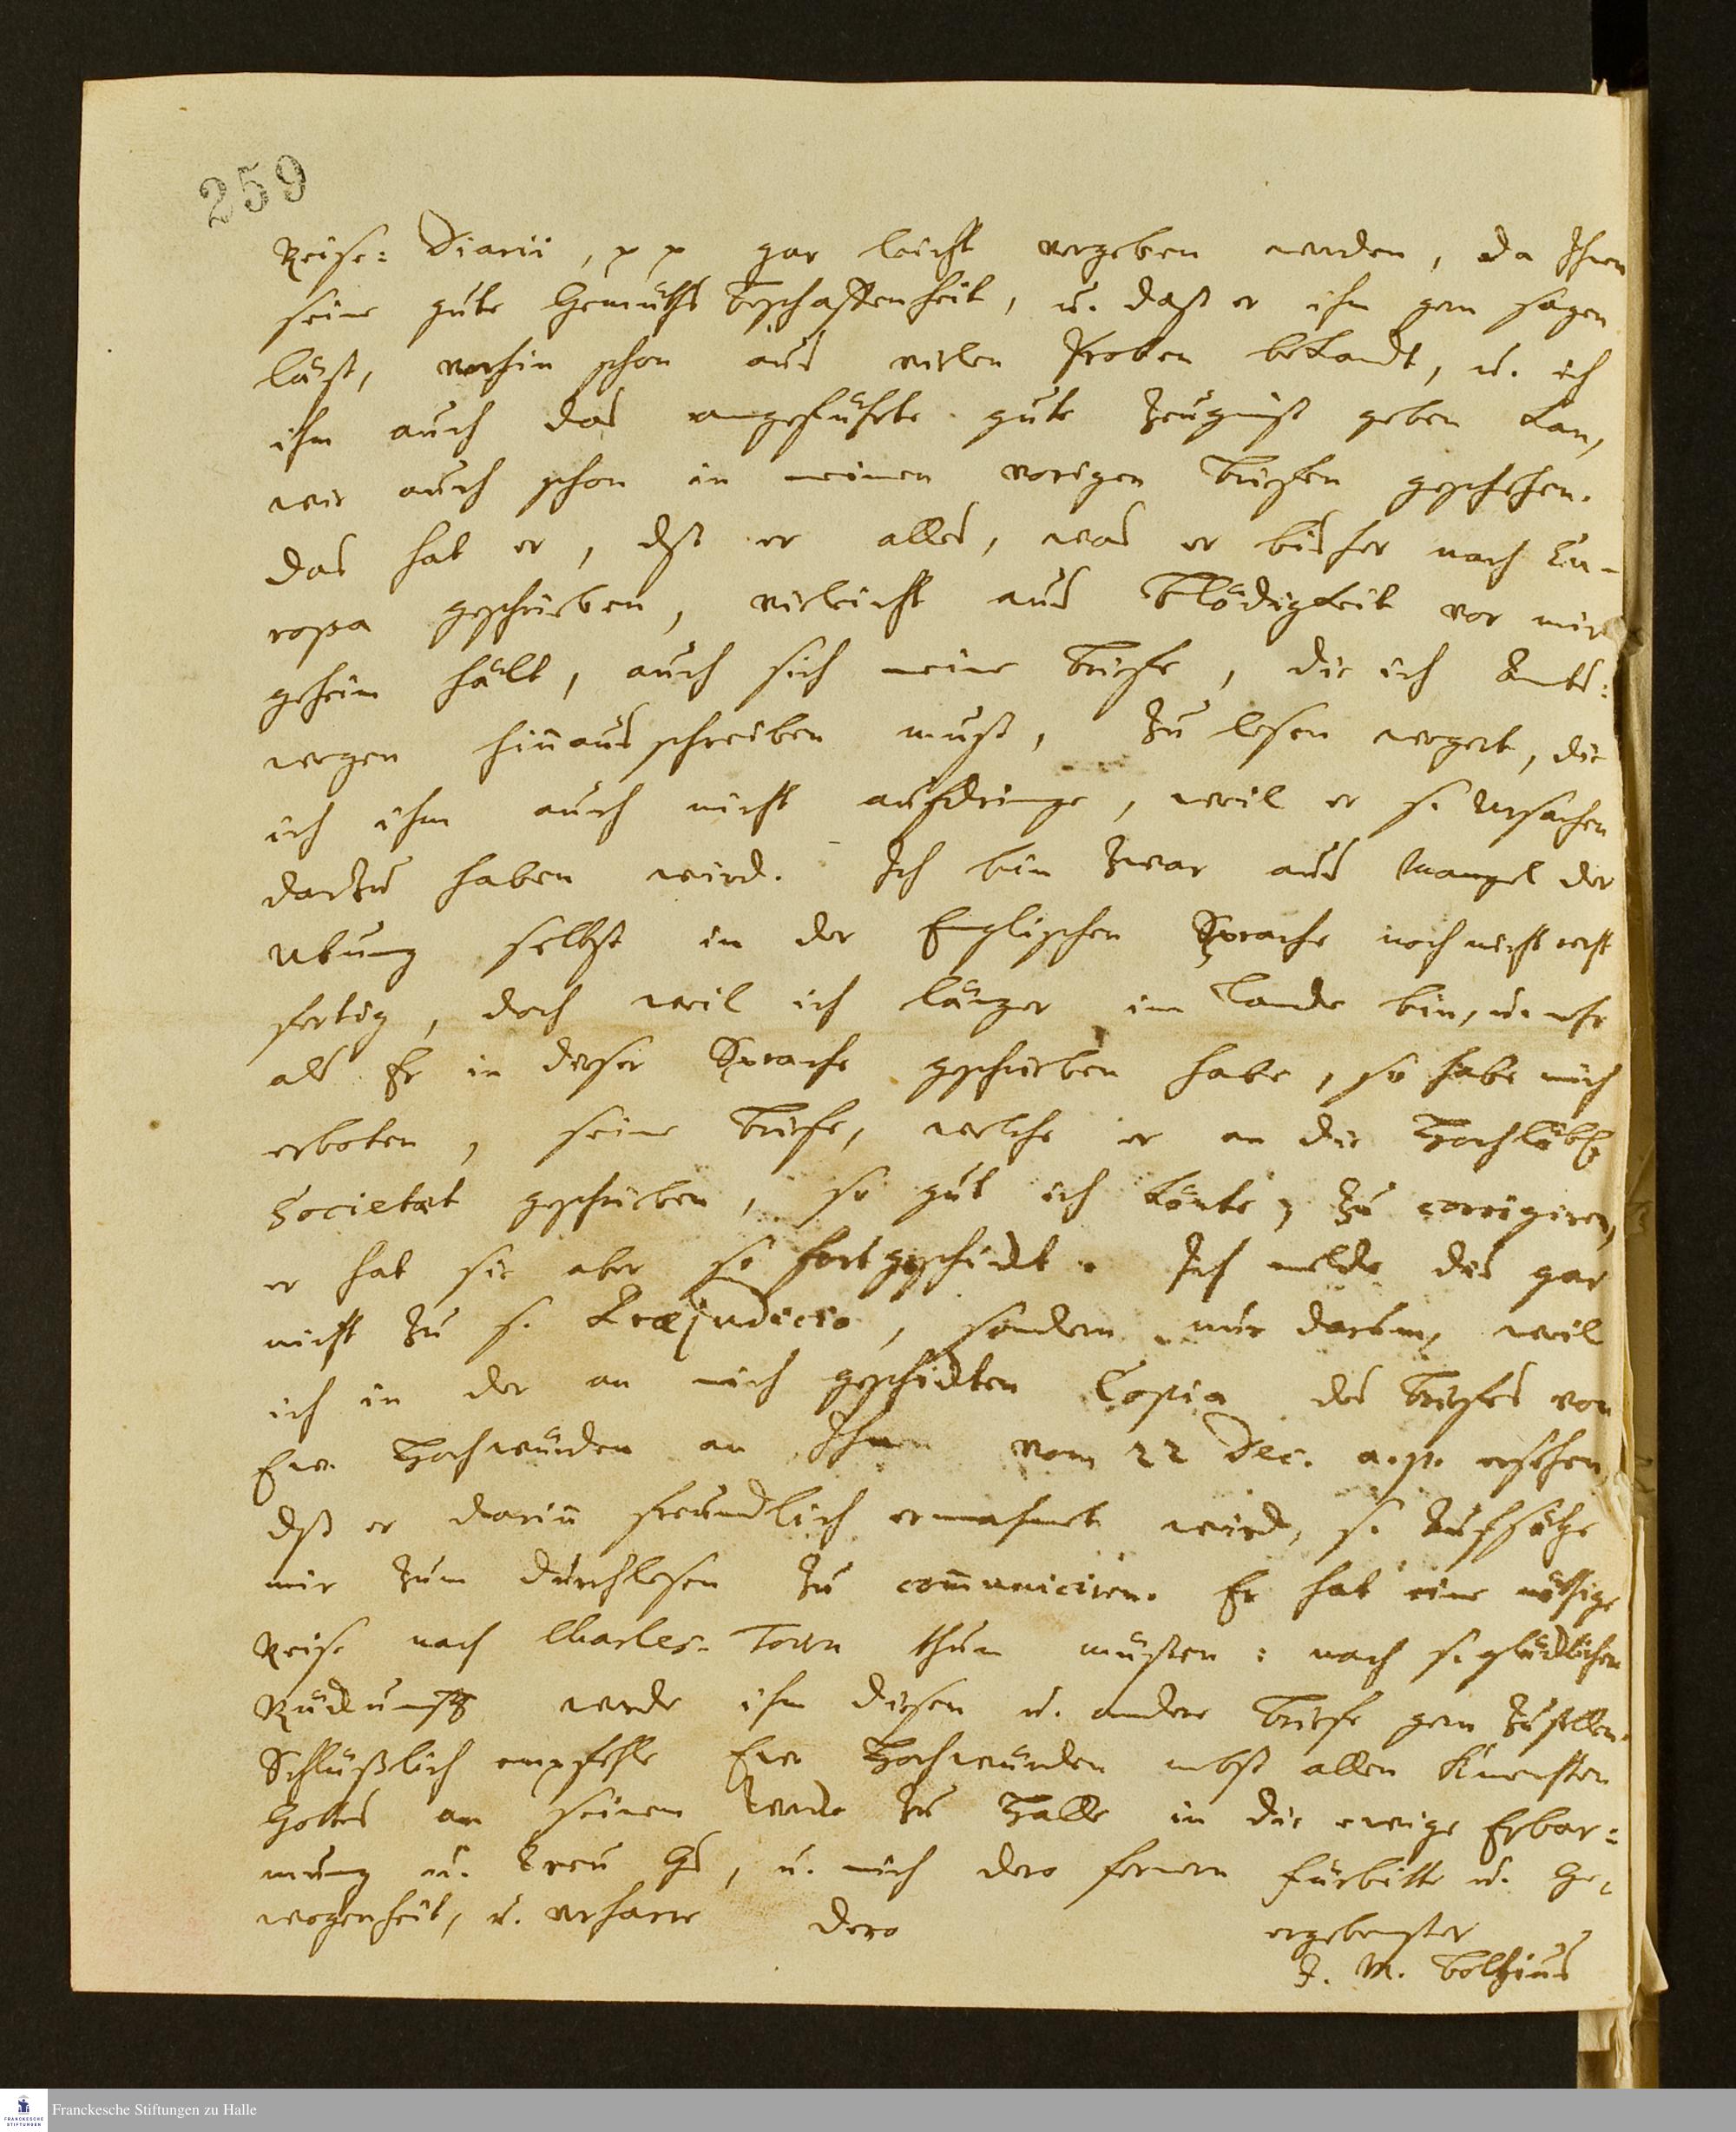 259
Reise-Diarii, pp gar leicht vergeben werden, da Ihnen
seine gute Gemüths Beschaffenheit, u. daß er ihm gern sagen
läßt, vorhin schon aus vielen Proben bekandt, u. ich
ihm auch das angeführte gute Zeugniß geben kan,
wie auch schon in meinen vorigen Briefen geschehen.
Das hat er, dß er alles, was er bisher nach Eu-
ropa geschrieben, vieleicht aus Blödigkeit vor mir
geheim hält, auch sich meine Briefe, die ich Amts-
wegen hinausschreiben muß, zu lesen wegert, die
ich ihm auch nicht aufdringe, weil er s. Ursachen
darzu haben wird. Ich bin zwar aus Mangel der
Ubung selbst in der Englischen Sprache noch nicht recht
fertig, doch weil ich länger im Lande bin, u. mehr
als Er in dieser Sprache geschrieben habe, so habe mich
erboten, seine Briefe, welche er an die Hochlöbl.
Societæt geschrieben, so gut ich könte, zu corrigiren,
er hat sie aber so fortgeschickt. Ich melde dis gar
nicht zu s. Præjudicio, sondern nur darum, weil
ich in der an mich geschickten Copia des Briefes von
Ew. Hochwürden an Ihn vom 22 Dec. a. p. ersehen,
dß er darin freundlich ermahnet wird, s. Aufsätze
mir zum durchlesen zu communiciren. Er hat eine nöthige
Reise nach Charles-Town thun müßen: nach s. glücklichen
Rückunft werde ihm diesen u. andere Briefe gern zustellen.
Schlüßlich empfehle Ew Hochwürden nebst allen Knechten
Gottes an seinem Wercke zu Halle in die ewige Erbar-
mung u. Treu Gs, u. mich dero fernern Fürbitte u. Ge-
wogenheit, u. verharre Dero ergebenster
J. M. Boltzius
Franckesche Stiftungen zu Halle
FRANCKESCHE STIFTUNGEN